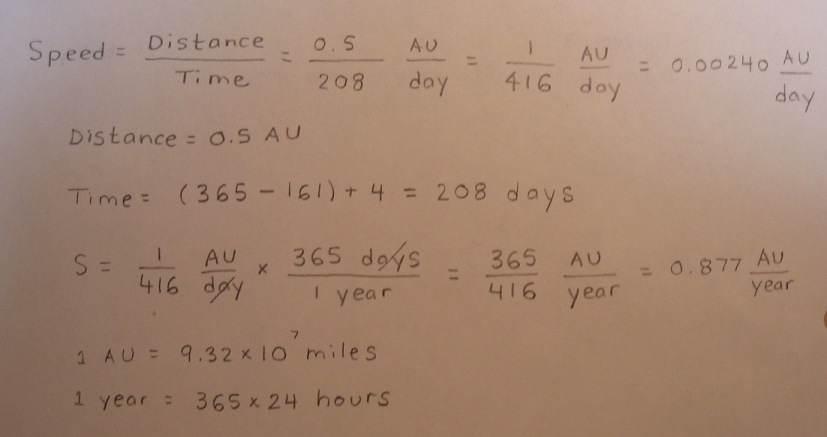 Speed = Distance/Time = 0.5/208 AU/day = 1/416 AU/day = 0.00240 AU/day
Distance = 0.5 AU
Time = (365 - 161) + 4 = 208 days
S = 1/416 AU/day × 365 days/1 year = 365/416 AU/year = 0.877 AU/year
1 AU = 9.32 × 10⁷ miles
1 year = 365 × 24 hours